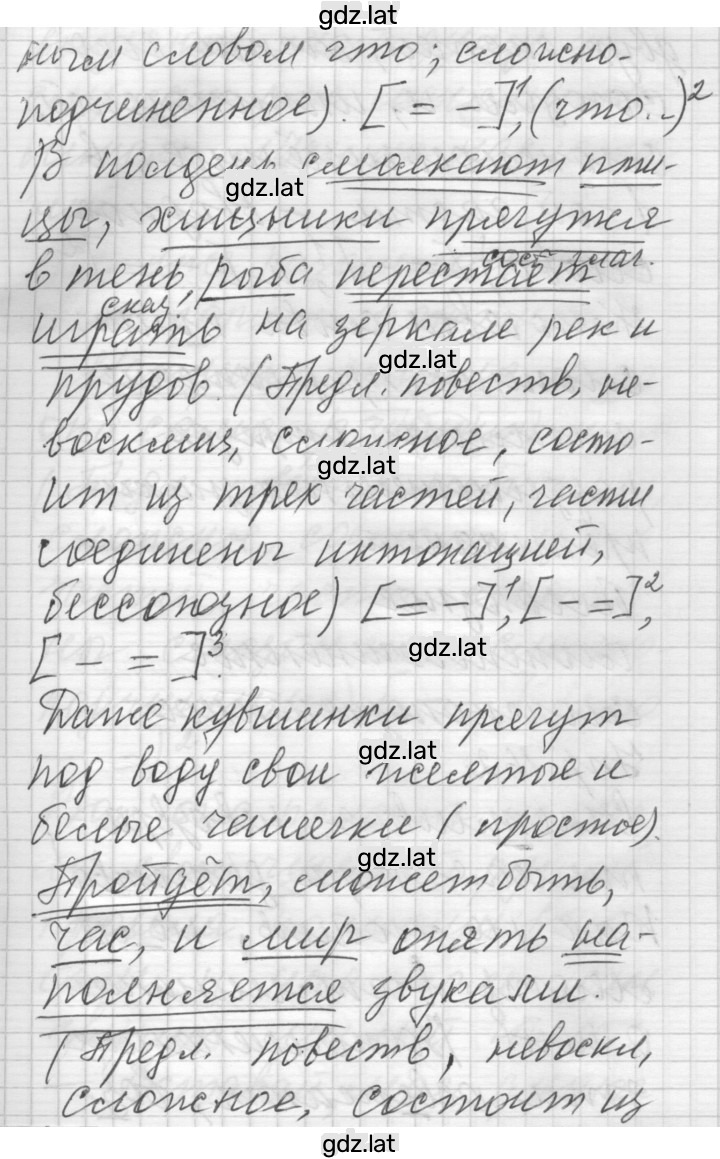 gdz.lat
ным словом что; сложно-
подчиненное). [ = - ]¹, (что..)²
В полдень смолкают пти-
gdz.lat
цы, хищники прячутся
в тень, рыба перестаёт
сост. глаг.
сказ.
играть на зеркале рек и
gdz.lat
прудов. (Предл. повеств, не-
восклиц, сложное, состо-
gdz.lat
ит из трех частей, части
соединены интонацией,
бессоюзное) [ = - ]¹, [ - = ]²,
[ - = ]³.
gdz.lat
Даже кувшинки прячут
gdz.lat
под воду свои желтые и
белые чашечки (простое).
gdz.lat
Пройдёт, может быть,
час, и мир опять на-
полняется звуками.
(Предл. повеств, невоскл,
сложное, состоит из
gdz.lat